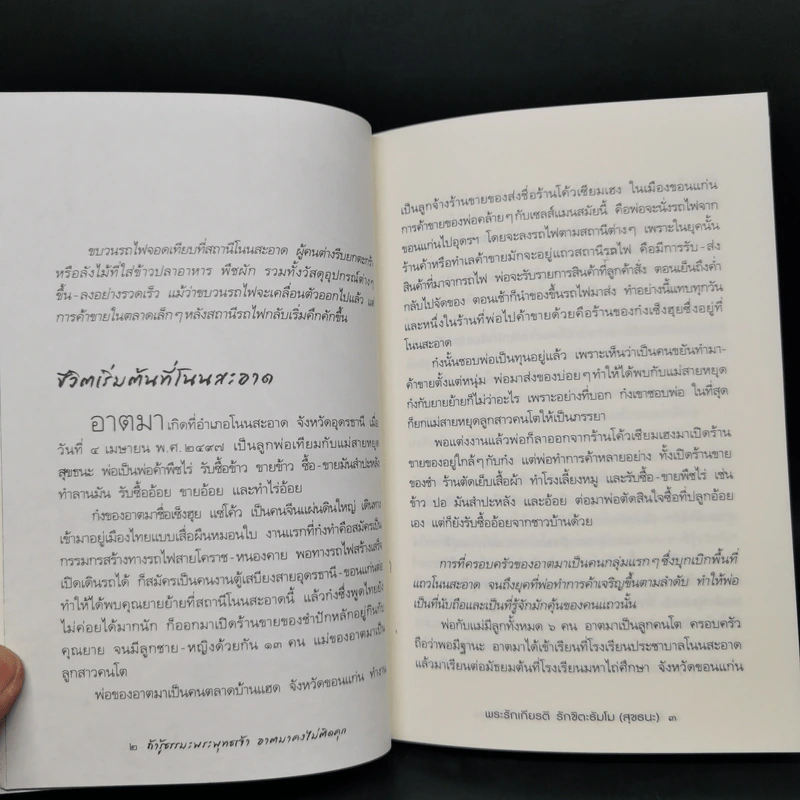 ขบวนรถไฟจอดเทียบที่สถานีโนนสะอาด ผู้คนต่างรีบยกตะกร้า
หรือลังไม้ที่ใส่ข้าวปลาอาหาร พืชผัก รวมทั้งวัสดุอุปกรณ์ต่างๆ
ขึ้น-ลงอย่างรวดเร็ว แม้ว่าขบวนรถไฟจะเคลื่อนตัวออกไปแล้ว แต่
การค้าขายในตลาดเล็กๆ หลังสถานีรถไฟกลับเริ่มคึกคักขึ้น
ชีวิตเริ่มต้นที่โนนสะอาด
อาตมาเกิดที่อำเภอโนนสะอาด จังหวัดอุดรธานี เมื่อ
วันที่ ๔ เมษายน พ.ศ. ๒๔๙๗ เป็นลูกพ่อเทียมกับแม่สายหยุด
สุขธนะ พ่อเป็นพ่อค้าพืชไร่ รับซื้อข้าว ขายข้าว ซื้อ-ขายมันสำปะหลัง
ทำลานมัน รับซื้ออ้อย ขายอ้อย และทำไร่อ้อย
ก๋งของอาตมาชื่อเซ็งฮุย แซ่โค้ว เป็นคนจีนแผ่นดินใหญ่ เดินทาง
เข้ามาอยู่เมืองไทยแบบเสื่อผืนหมอนใบ งานแรกที่ก๋งทำคือสมัครเป็น
กรรมกรสร้างทางรถไฟสายโคราช-หนองคาย พอทางรถไฟสร้างเสร็จ
เปิดเดินรถได้ ก็สมัครเป็นคนงานตู้เสบียงสายอุดรธานี-ขอนแก่น
ทำให้ได้พบคุณยายย้ายที่สถานีโนนสะอาดนี้ แล้วก๋งซึ่งพูดไทยยัง
ไม่ค่อยได้มากนัก ก็ออกมาเปิดร้านขายของชำปักหลักอยู่กินกับ
คุณยาย จนมีลูกชาย-หญิงด้วยกัน ๑๓ คน แม่ของอาตมาเป็น
ลูกสาวคนโต
พ่อของอาตมาเป็นคนตลาดบ้านแฮด จังหวัดขอนแก่น ทำงาน
๒ ถ้ารู้ธรรมะพระพุทธเจ้า อาตมาคงไม่ติดคุก
เป็นลูกจ้างร้านขายของส่งชื่อร้านโค้วเซียมเฮง ในเมืองขอนแก่น
การค้าขายของพ่อคล้ายๆ กับเซลส์แมนสมัยนี้ คือพ่อจะนั่งรถไฟจาก
ขอนแก่นไปอุดรฯ โดยจะลงรถไฟตามสถานีต่างๆ เพราะในยุคนั้น
ร้านค้าหรือทำเลค้าขายมักจะอยู่แถวสถานีรถไฟ คือมีการรับ-ส่ง
สินค้าที่มาจากรถไฟ พ่อจะรับรายการสินค้าที่ลูกค้าสั่ง ตอนเย็นถึงค่ำ
กลับไปจัดของ ตอนเช้าก็นำของขึ้นรถไฟมาส่ง ทำอย่างนี้แทบทุกวัน
และหนึ่งในร้านที่พ่อไปค้าขายด้วยคือร้านของก๋งเซ็งฮุยซึ่งอยู่ที่
โนนสะอาด
ก๋งนั้นชอบพ่อเป็นทุนอยู่แล้ว เพราะเห็นว่าเป็นคนขยันทำมา-
ค้าขายตั้งแต่หนุ่ม พ่อมาส่งของบ่อยๆ ทำให้ได้พบกับแม่สายหยุด
ก๋งกับยายย้ายก็ไม่ว่าอะไร เพราะอย่างที่บอก ก๋งเขาชอบพ่อ ในที่สุด
ก็ยกแม่สายหยุดลูกสาวคนโตให้เป็นภรรยา
พอแต่งงานแล้วพ่อก็ลาออกจากร้านโค้วเซียมเฮงมาเปิดร้าน
ขายของอยู่ใกล้ๆ กับก๋ง แต่พ่อทำการค้าหลายอย่าง ทั้งเปิดร้านขาย
ของชำ ร้านตัดเย็บเสื้อผ้า ทำโรงเลี้ยงหมู และรับซื้อ-ขายพืชไร่ เช่น
ข้าว ปอ มันสำปะหลัง และอ้อย ต่อมาพ่อตัดสินใจซื้อที่ปลูกอ้อย
เอง แต่ก็ยังรับซื้ออ้อยจากชาวบ้านด้วย
การที่ครอบครัวของอาตมาเป็นคนกลุ่มแรกๆ ซึ่งบุกเบิกพื้นที่
แถวโนนสะอาด จนถึงยุคที่พ่อทำการค้าเจริญขึ้นตามลำดับ ทำให้พ่อ
เป็นที่นับถือและเป็นที่รู้จักมักคุ้นของคนแถวนั้น
พ่อกับแม่มีลูกทั้งหมด ๖ คน อาตมาเป็นลูกคนโต ครอบครัว
ถือว่าพอมีฐานะ อาตมาได้เข้าเรียนที่โรงเรียนประชาบาลโนนสะอาด
แล้วมาเรียนต่อมัธยมต้นที่โรงเรียนมหาไถ่ศึกษา จังหวัดขอนแก่น
พระรักเกียรติ รักขิตะธัมโม (สุขธนะ) ๓